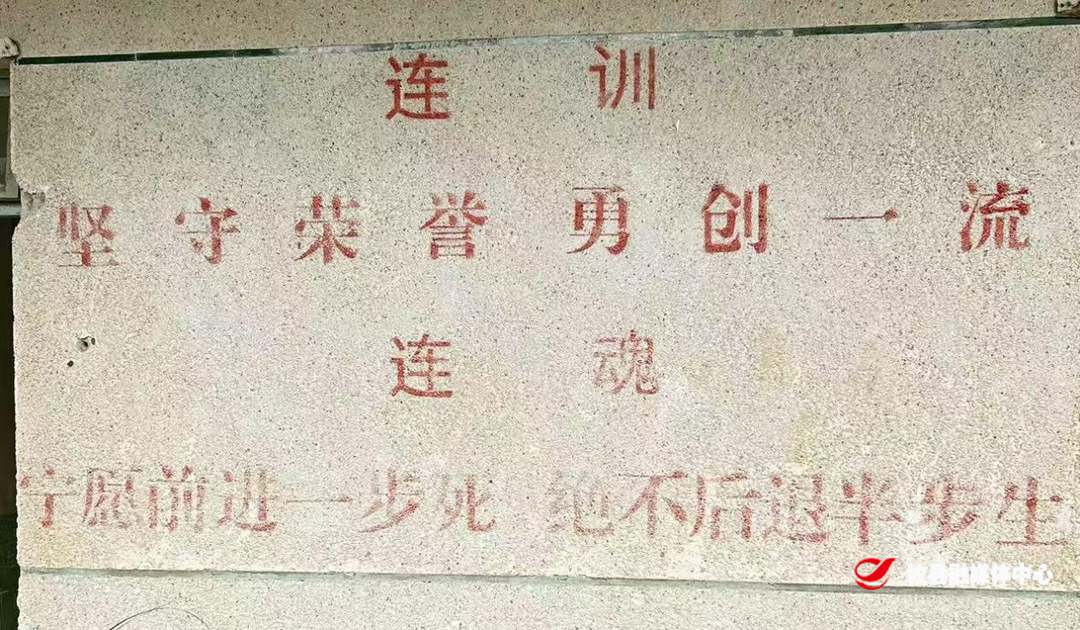 连训
坚守荣誉 勇创一流
连魂
宁愿前进一步死 绝不后退半步生
攸县融媒体中心